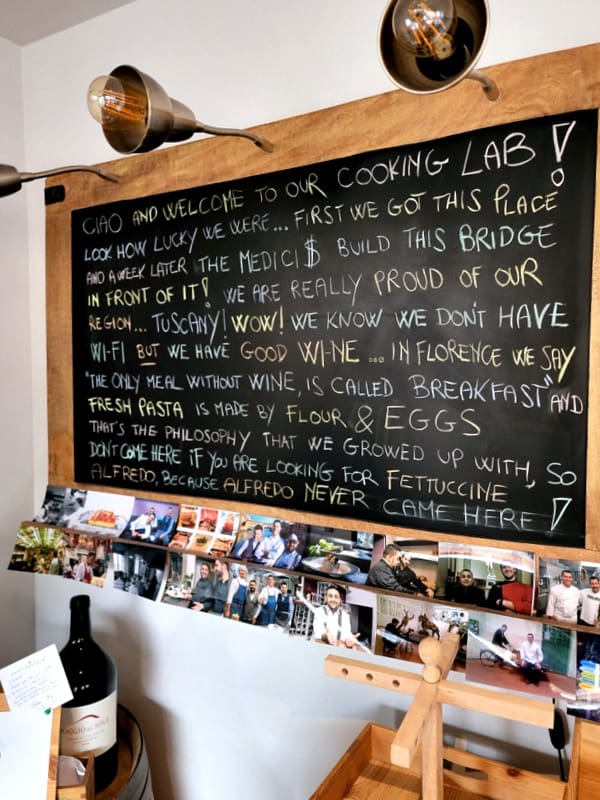 CIAO AND WELCOME TO OUR COOKING LAB!
LOOK HOW LUCKY WE WERE... FIRST WE GOT THIS PLACE
AND A WEEK LATER THE MEDICI$ BUILD THIS BRIDGE
IN FRONT OF IT! WE ARE REALLY PROUD OF OUR
REGION... TUSCANY! WOW! WE KNOW WE DON'T HAVE
WI-FI BUT WE HAVE GOOD WI-NE... IN FLORENCE WE SAY
"THE ONLY MEAL WITHOUT WINE, IS CALLED BREAKFAST" AND
FRESH PASTA IS MADE BY FLOUR & EGGS
THAT'S THE PHILOSOPHY THAT WE GROWED UP WITH, SO
DON'T COME HERE IF YOU ARE LOOKING FOR FETTUCCINE
ALFREDO, BECAUSE ALFREDO NEVER CAME HERE!